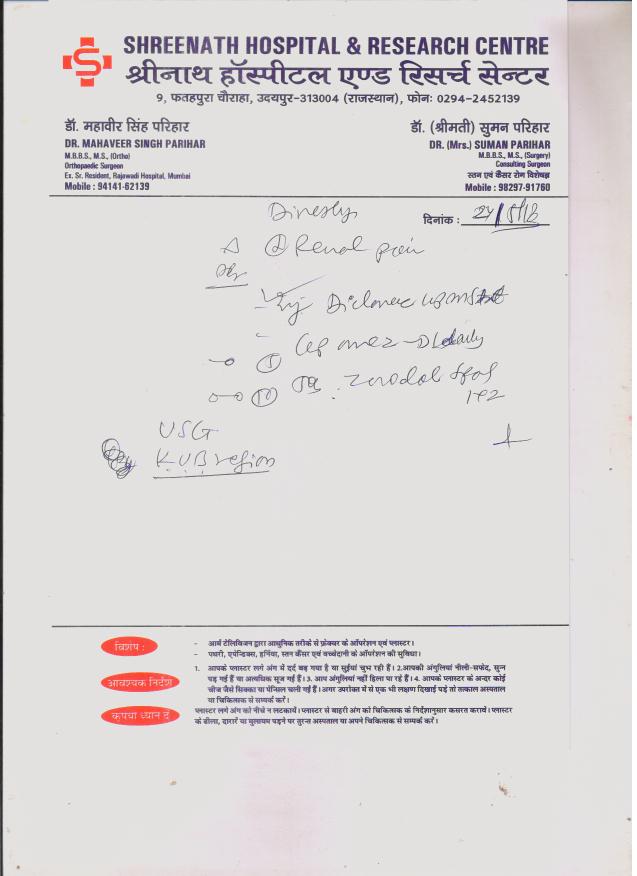 SHREENATH HOSPITAL & RESEARCH CENTRE
श्रीनाथ हॉस्पीटल एण्ड रिसर्च सेन्टर
9, फतहपुरा चौराहा, उदयपुर-313004 (राजस्थान), फोन: 0294-2452139
डॉ. महावीर सिंह परिहार
DR. MAHAVEER SINGH PARIHAR
M.B.B.S., M.S., (Ortho)
Orthopaedic Surgeon
Ex. Sr. Resident, Rajawadi Hospital, Mumbai
Mobile : 94141-62139
डॉ. (श्रीमती) सुमन परिहार
DR. (Mrs.) SUMAN PARIHAR
M.B.B.S., M.S., (Surgery)
Consulting Surgeon
स्तन एवं कैंसर रोग विशेषज्ञ
Mobile : 98297-91760
दिनांक :
Renal pain
Inj Diclonac
omez-D daily
Zerodol
1+2
USG
K.U.B region
विशेष :
- आर्म टेलिविजन द्वारा आधुनिक तरीके से फ्रेक्चर के ऑपरेशन एवं प्लास्टर।
- पथरी, एपेन्डिक्स, हर्निया, स्तन कैंसर एवं बच्चेदानी के ऑपरेशन की सुविधा।
आवश्यक निर्देश
1. आपके प्लास्टर लगे अंग में दर्द बढ़ गया है या सुईयां चुभ रही हैं। 2. आपकी अंगुलियां नीली-सफेद, सुन्न
पड़ गई हैं या अत्यधिक सूज गई हैं। 3. आप अंगुलियां नहीं हिला पा रहे हैं। 4. आपके प्लास्टर के अन्दर कोई
चीज जैसे सिक्का या पेन्सिल चली गई हैं। अगर उपरोक्त में से एक भी लक्षण दिखाई पड़े तो तत्काल अस्पताल
या चिकित्सक से सम्पर्क करें।
कृपया ध्यान दें
प्लास्टर लगे अंग को नीचे न लटकायें। प्लास्टर से बाहरी अंग को चिकित्सक के निर्देशानुसार कसरत करावें। प्लास्टर
के ढीला, दरारें या मुलायम पड़ने पर तुरन्त अस्पताल या अपने चिकित्सक से सम्पर्क करें।